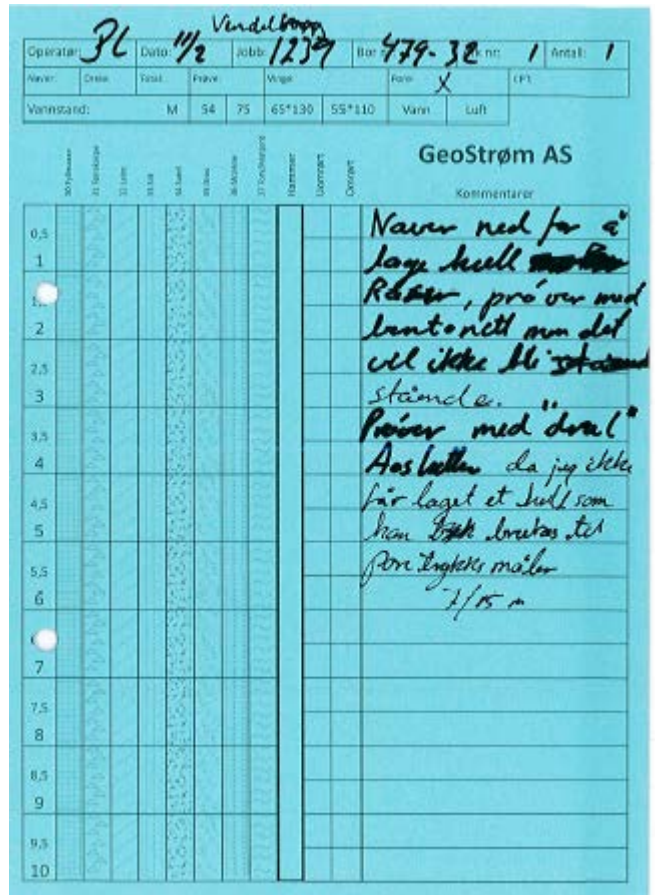 Vendelborg
Operatør: PL Dato: 11/2 Jobb: 1239 Bor 479-32 nr: 1 Antall: 1
Naver: Dreie: Total: Prøve: Vinge: Pore: X CPT:
Vannstand: M 54 75 65*130 55*110 Vann Luft
Hammer Uomrørt Omrørt
GeoStrøm AS
Kommentarer
0,5
1
2
2,5
3
3,5
4
4,5
5
5,5
6
7
7,5
8
8,5
9
9,5
10
Naver ned for å
lage hull
Raser, prøver med
bentonitt men det
vil ikke bli
stående.
Prøver med "dral"
Avslutter da jeg ikke
får laget et hull som
kan brukes til
pore trykks måler
7/15 m